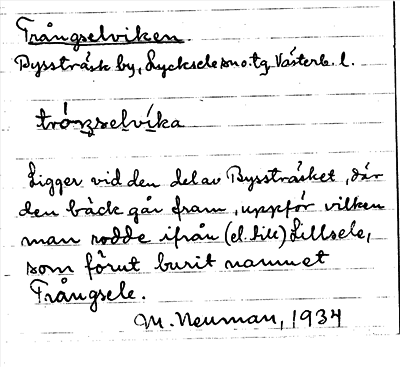 Trångselviken.
Byssträsk by, Lycksele sn o. tg. Västerb. l.
tróŋsęlvíka
Ligger vid den del av Byssträsket, där
den bäck går fram, uppför vilken
man rodde ifrån (el. till) Lillsele,
som förut burit namnet
Trångsele.
M. Neuman, 1934